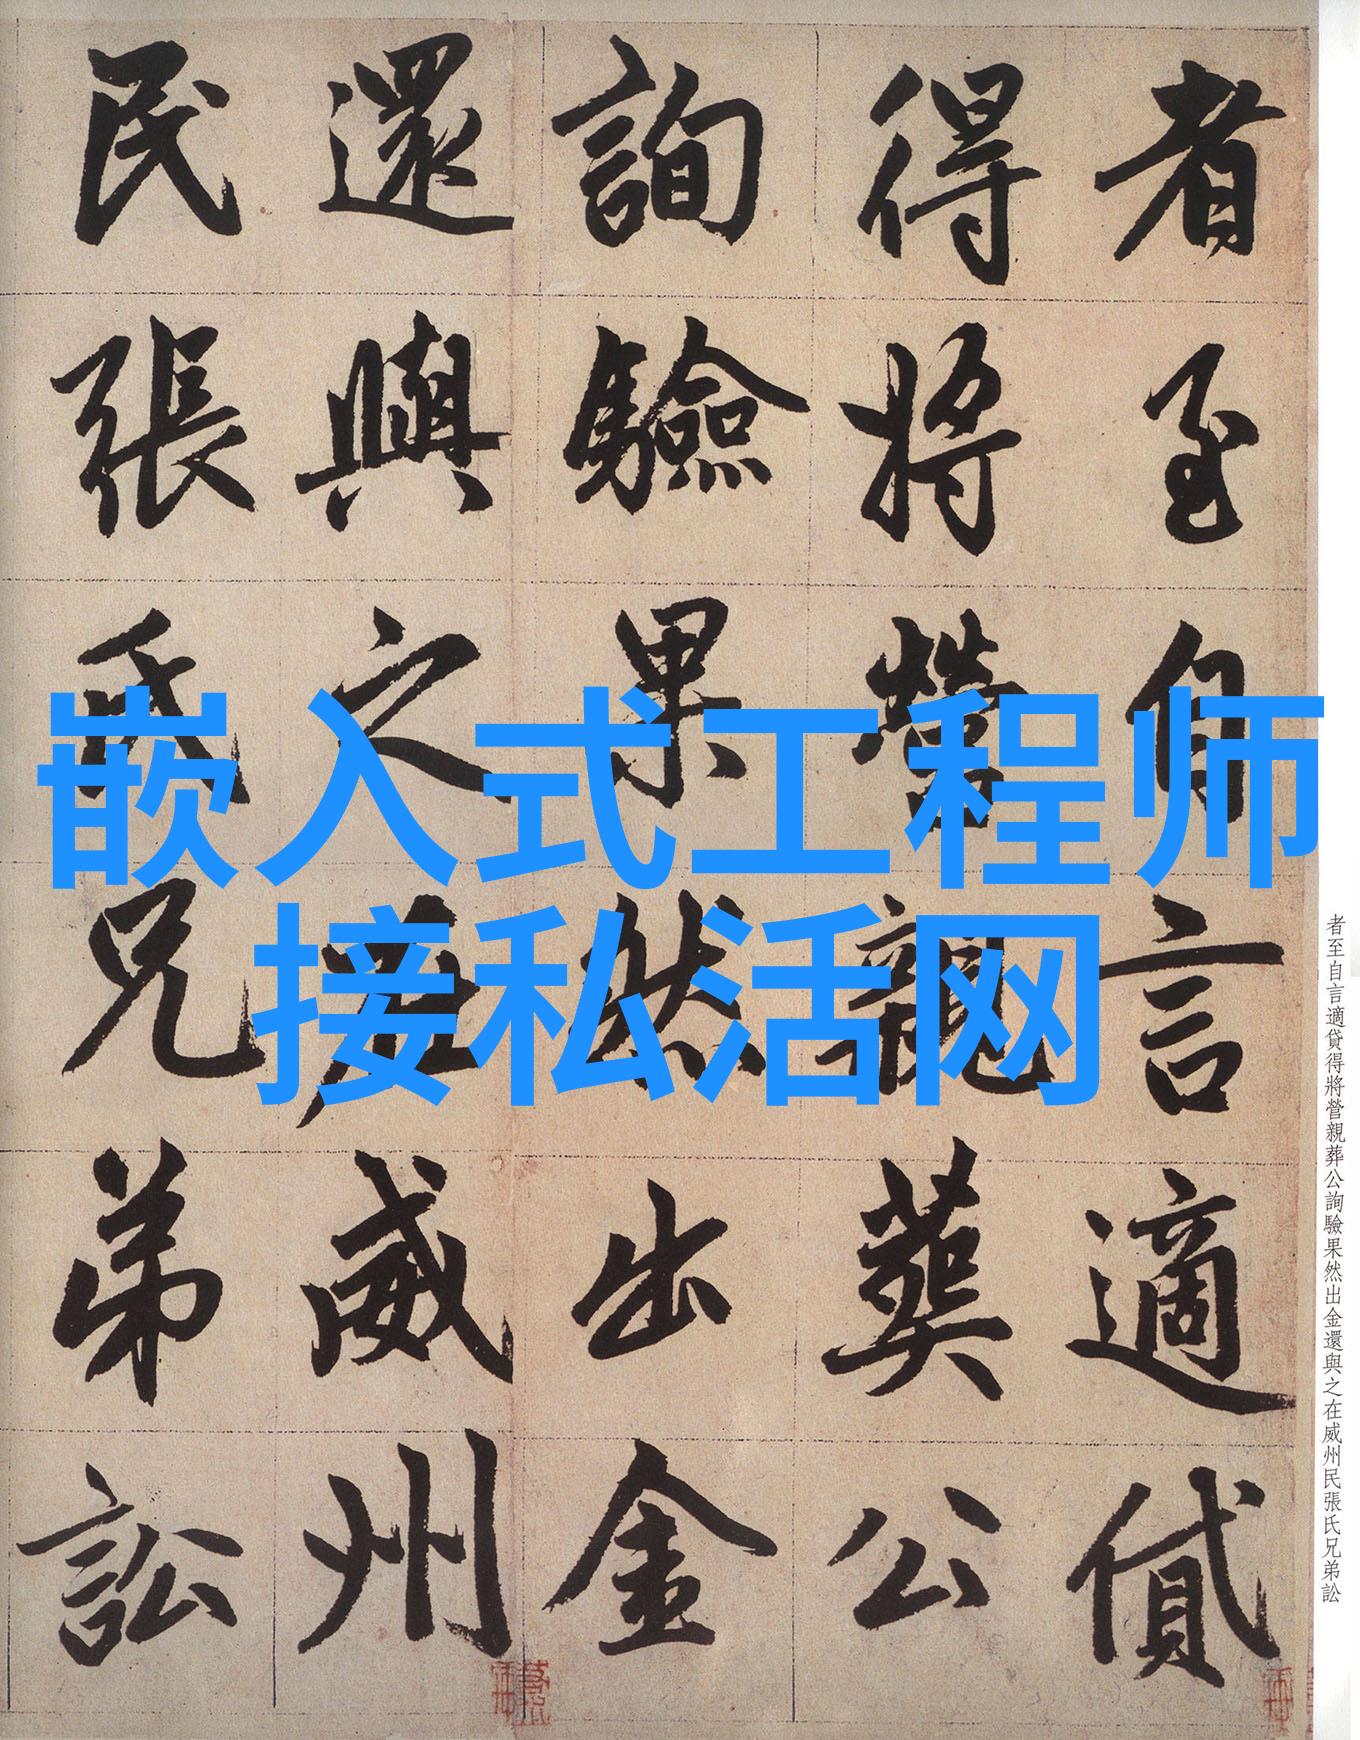 嵌入式工程师
接私活网
者至自言適貸
得將營親葬公
詢驗果然出金
還與之在威州
民張氏兄弟訟
者至自言適貸得將營親葬公詢驗果然出金還與之在威州民張氏兄弟訟